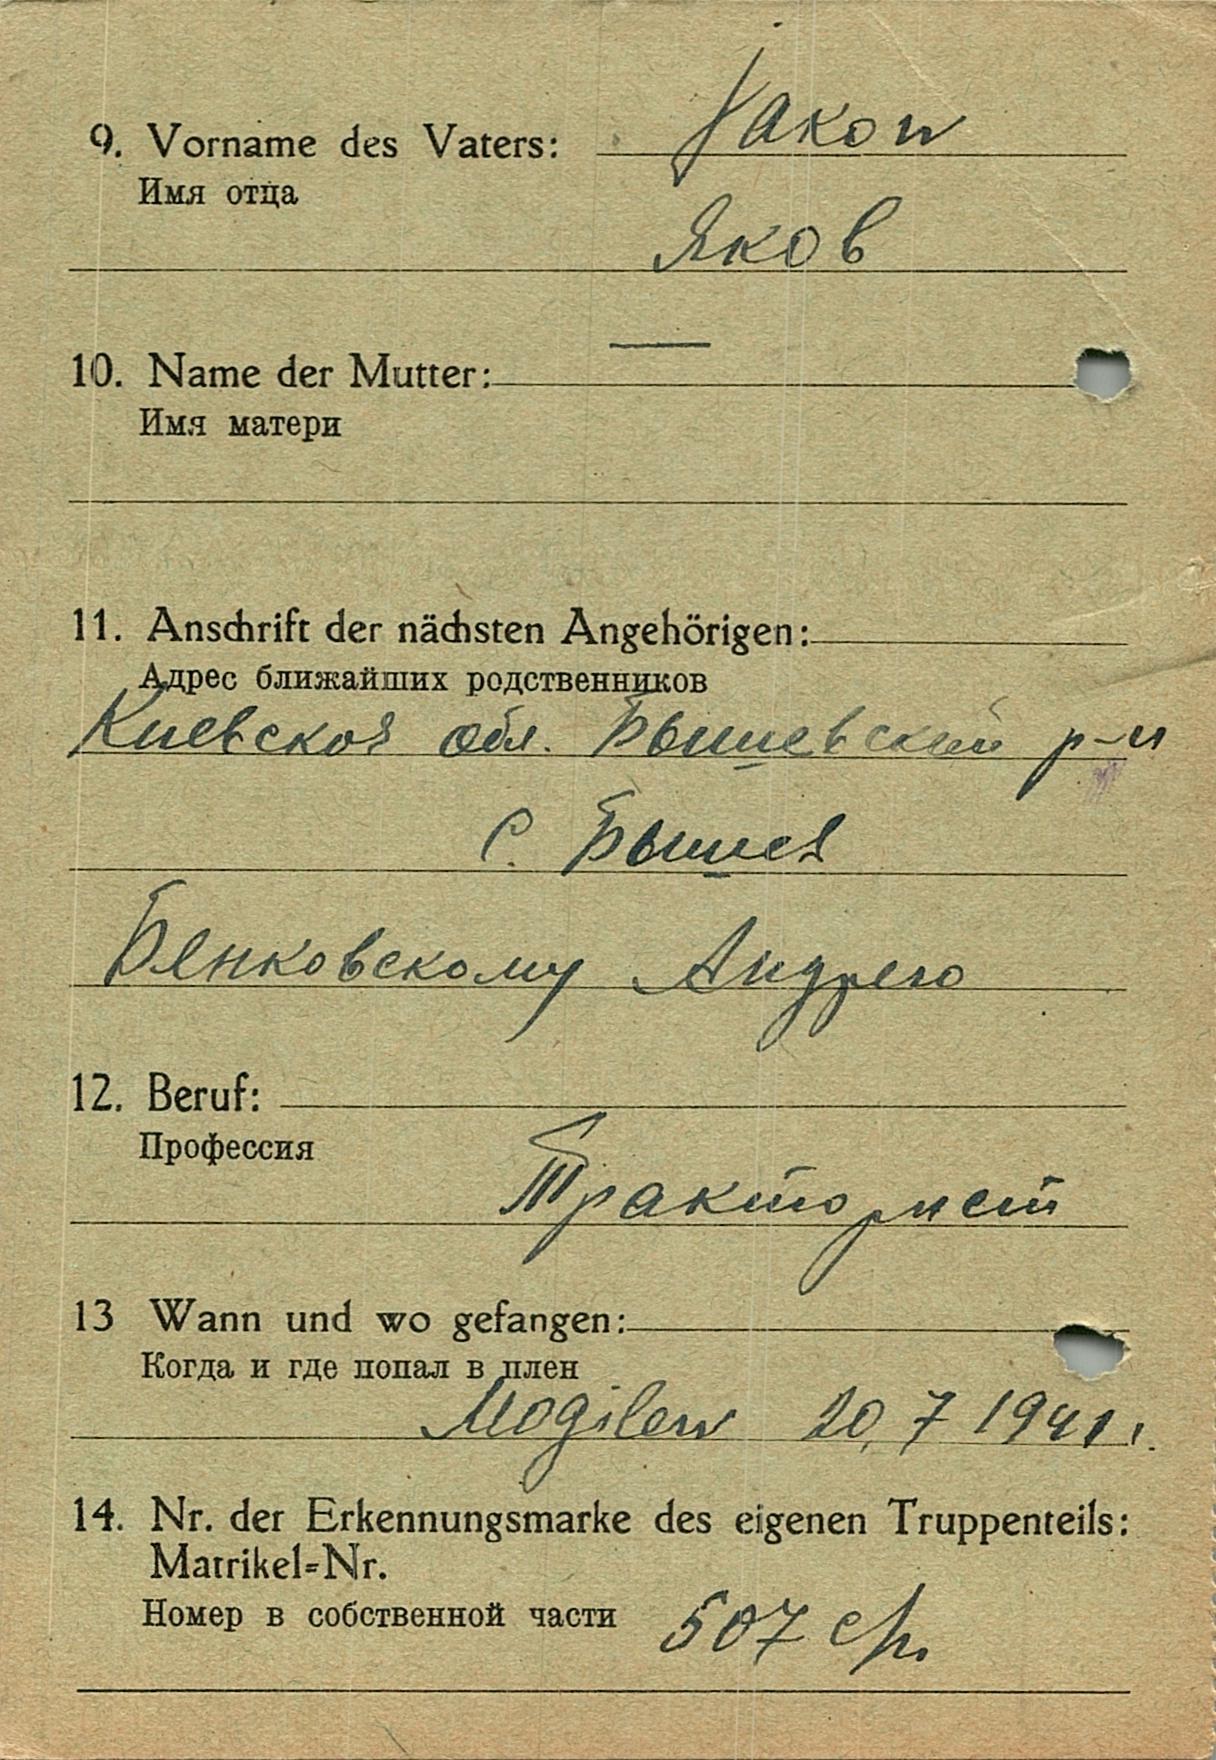 9. Vorname des Vaters: Jakow
Имя отца
Яков
10. Name der Mutter: —
Имя матери
11. Anschrift der nächsten Angehörigen:
Адрес ближайших родственников
Киевской обл. Бышевский р-н
с. Бышев
Бенковскому Андрею
12. Beruf:
Профессия
Тракторист
13 Wann und wo gefangen:
Когда и где попал в плен
Mogilew 20.7 1941 г.
14. Nr. der Erkennungsmarke des eigenen Truppenteils:
Matrikel-Nr.
Номер в собственной части 507 ср.